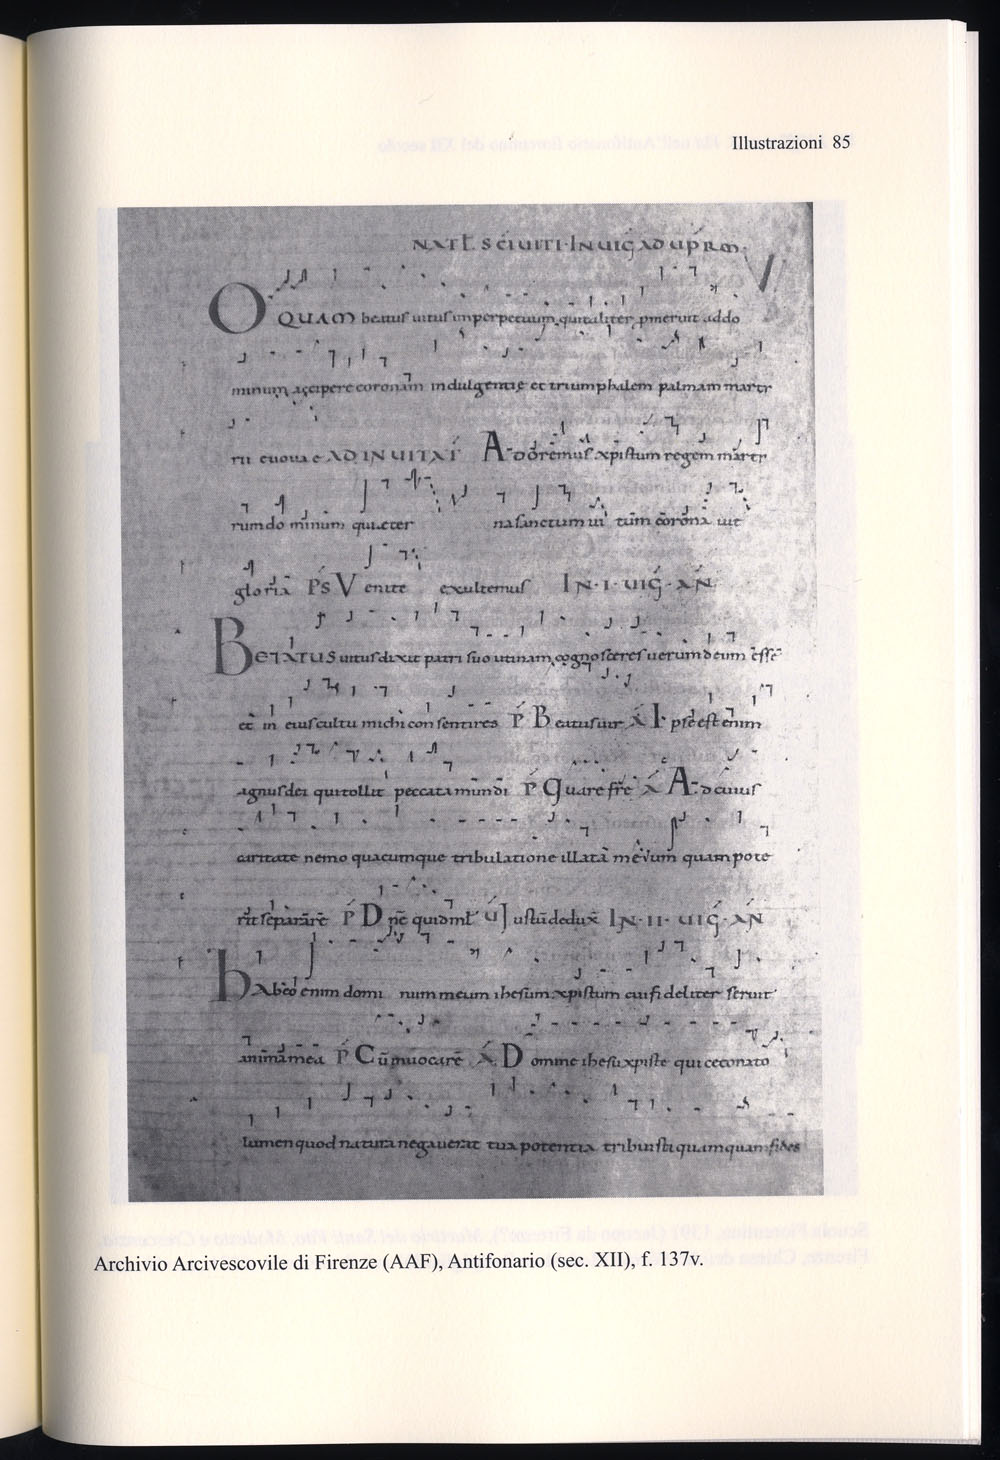 Illustrazioni 85
NATL SCI UITI · IN UIG AD UPRM · V
O QUAM beatus uitus inperpetuum quitaliter pmeruit addo
minum accipere coronam indulgentie et triumphalem palmam martr
rii euouae AD INUITAT Adoremus xpistum regem martr
rum do minum qui eter na sanctum ui tum corona uit
gloria Ps Venite exultemus IN · I · UIG · AN
BEATUS uitus dixit patri suo utinam cognosceres uerum deum esse
et in eius cultu michi consentires P Beatus uir A Ipse est enim
agnus dei qui tollit peccata mundi P Quare fre A Ad cuius
caritate nemo quacumque tribulatione illata me uum quam pote
rit separare P Dne quid ml Iustu dedux IN · II · UIG · AN
hAbeo enim domi num meum ihesum xpistum cui fideliter seruit
anima mea P Cu inuocare A Domine ihesu xpiste qui ceco nato
lumen quod natura negauerat tua potentia tribuisti quamquam fides
Archivio Arcivescovile di Firenze (AAF), Antifonario (sec. XII), f. 137v.